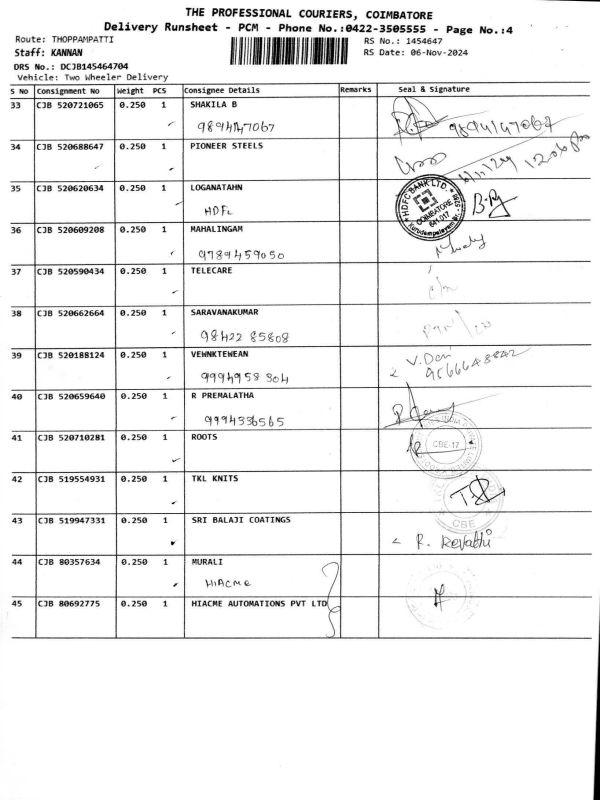 THE PROFESSIONAL COURIERS, COIMBATORE
Delivery Runsheet - PCM - Phone No.:0422-3505555 - Page No.:4
Route: THOPPAMPATTI RS No.: 1454647
Staff: KANNAN RS Date: 06-Nov-2024
DRS No.: DCJB145464704
Vehicle: Two Wheeler Delivery
S No Consignment No Weight PCS Consignee Details Remarks Seal & Signature
33 CJB 520721065 0.250 1 SHAKILA B
9894147067 9894147067
34 CJB 520688647 0.250 1 PIONEER STEELS
6/11/24 12.06 pm
35 CJB 520620634 0.250 1 LOGANATAHN
HDFC
HDFC BANK LTD.
COIMBATORE
641 017
36 CJB 520609208 0.250 1 MAHALINGAM
9789459050
37 CJB 520590434 0.250 1 TELECARE
38 CJB 520662664 0.250 1 SARAVANAKUMAR
98422 85808
39 CJB 520188124 0.250 1 VEWNKTEWEAN
9994958304
V. Devi
40 CJB 520659640 0.250 1 R PREMALATHA
9994336565
41 CJB 520710281 0.250 1 ROOTS
CBE-17
42 CJB 519554931 0.250 1 TKL KNITS
CBE
43 CJB 519947331 0.250 1 SRI BALAJI COATINGS
R. Revathi
44 CJB 80357634 0.250 1 MURALI
HIACME
45 CJB 80692775 0.250 1 HIACME AUTOMATIONS PVT LTD